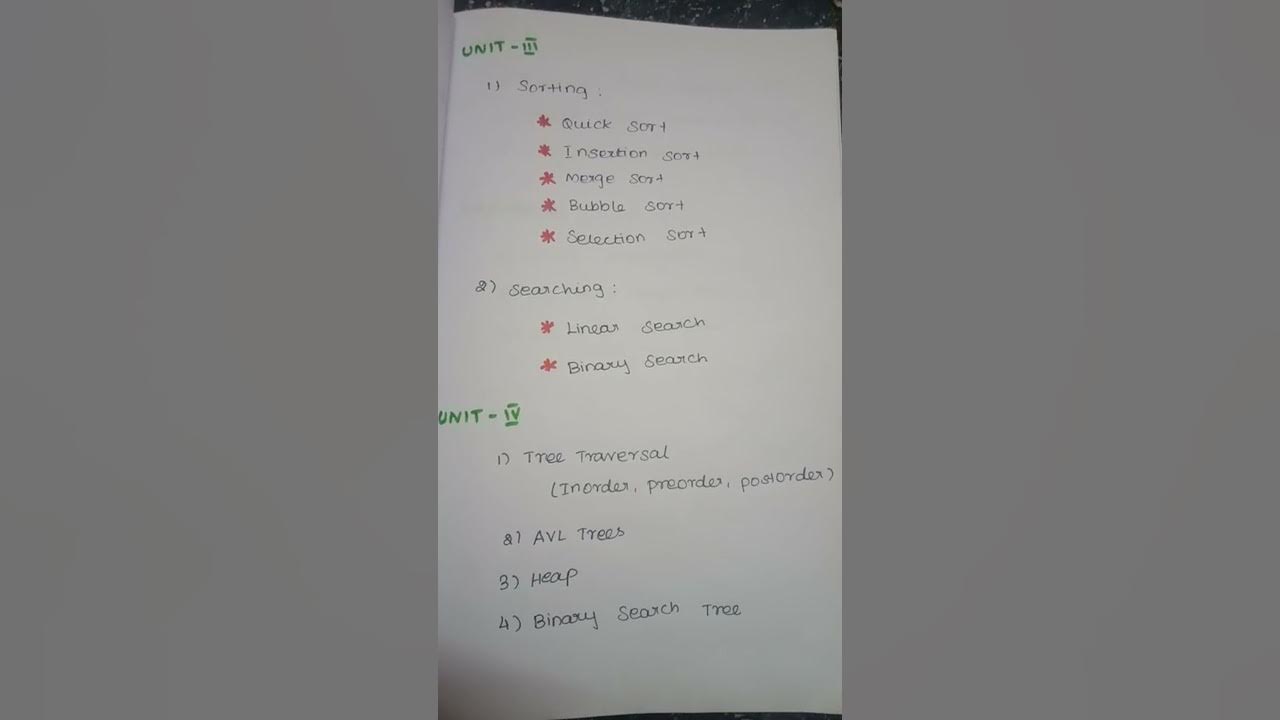 UNIT - III
1) Sorting :
* Quick sort
* Insertion sort
* Merge sort
* Bubble sort
* Selection sort
2) Searching :
* Linear Search
* Binary Search
UNIT - IV
1) Tree Traversal
(Inorder, preorder, postorder)
2) AVL Trees
3) Heap
4) Binary Search Tree